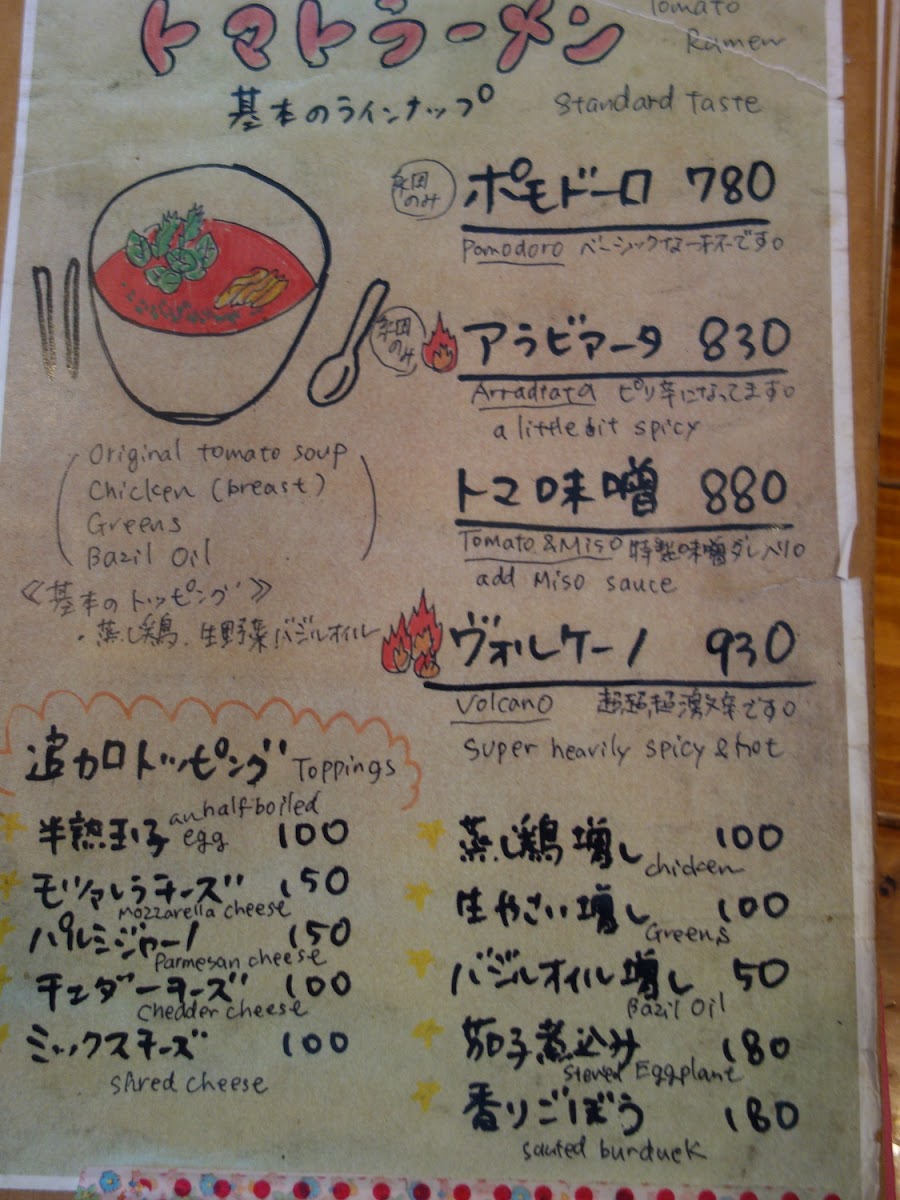 トマトラーメン
Tomato
Ramen
基本のラインナップ
Standard Taste
ポモドーロ 780
Pomodoro ベーシックな一杯です。
のみ
アラビアータ 830
ピリ辛になってます。
a little bit spicy
のみ
トマト味噌 880
Tomato & Miso 特製味噌ダレ入り。
add Miso sauce
ヴォルケーノ 930
Volcano 超超超激辛です。
super heavily spicy & hot
Original tomato soup
Chicken (breast)
Greens
Bazil Oil
《基本のトッピング》
・蒸し鶏、生野菜バジルオイル
追加トッピング Toppings
半熟玉子 an half-boiled egg 100
モッツァレラチーズ 150
Mozzarella cheese
パルミジャーノ 150
Parmesan cheese
チェダーチーズ 100
Chedder cheese
ミックスチーズ 100
Shred cheese
蒸し鶏増し 100
chicken
生やさい増し 100
Greens
バジルオイル増し 50
Bazil Oil
茄子煮込み 180
Stewed Eggplant
香りごぼう 180
sauted burduck